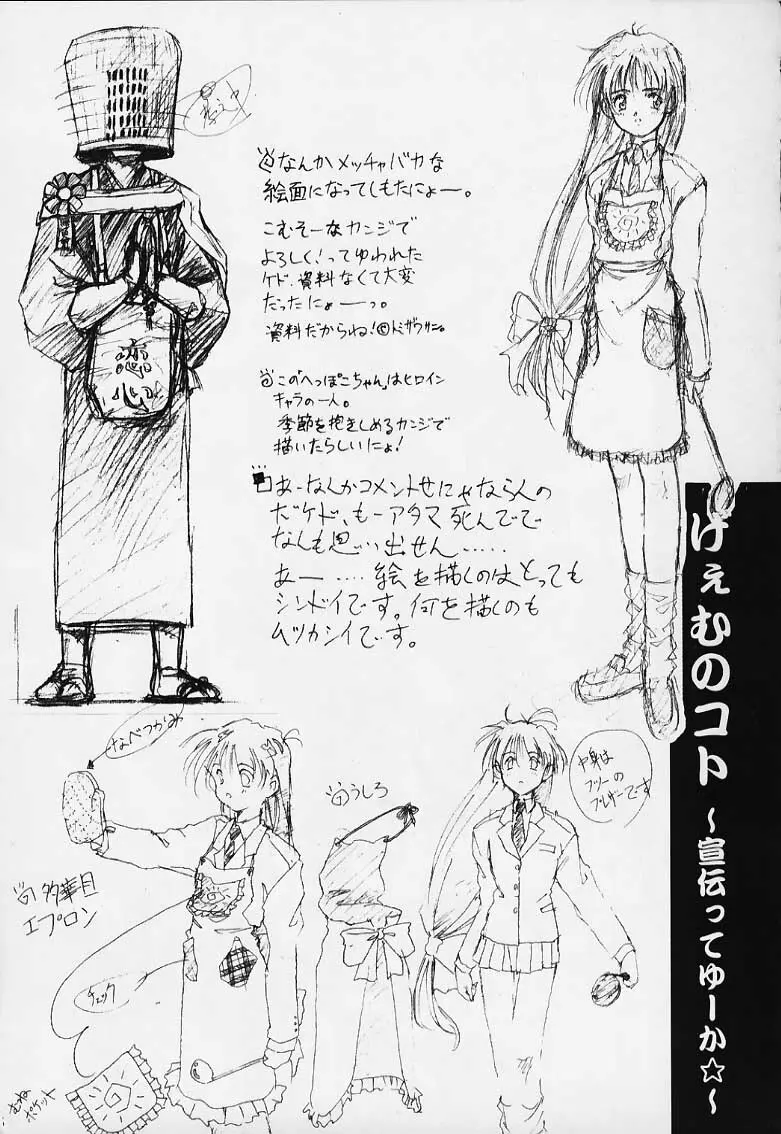 なんかメッチャバカな
絵面になってしもたにょー。
こむそーなカンジで
よろしく!ってゆわれた
ケド、資料なくて大変
だったにょーっ。
資料だからね!©トミザワサン。
この「へっぽこちゃん」はヒロイン
キャラの一人。
季節を抱きしめるカンジで
描いたらしいにょ!
あーなんかコメントせにゃならんの
だケド、もーアタマ死んでて
なんも思い出せん……
あー……絵を描くのはとっても
シンドイです。何を描くのも
ムツカシイです。
恋
心
けぇむのコト
～宣伝ってゆーか☆～
なべつかみ
うしろ
中身は
フツーの
ブレザーです
多華目
エプロン
チェック
むね
ポケット